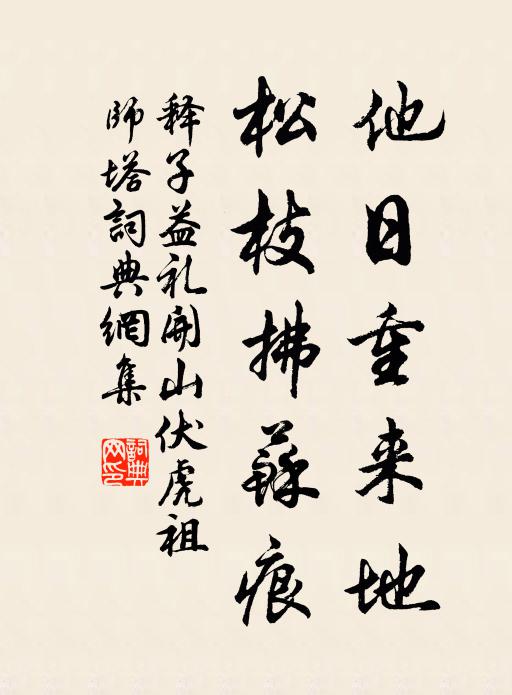 他日重来地
松枝拂蘚痕
释子益礼開山伏虎祖
師塔詞典網集
詞典网印